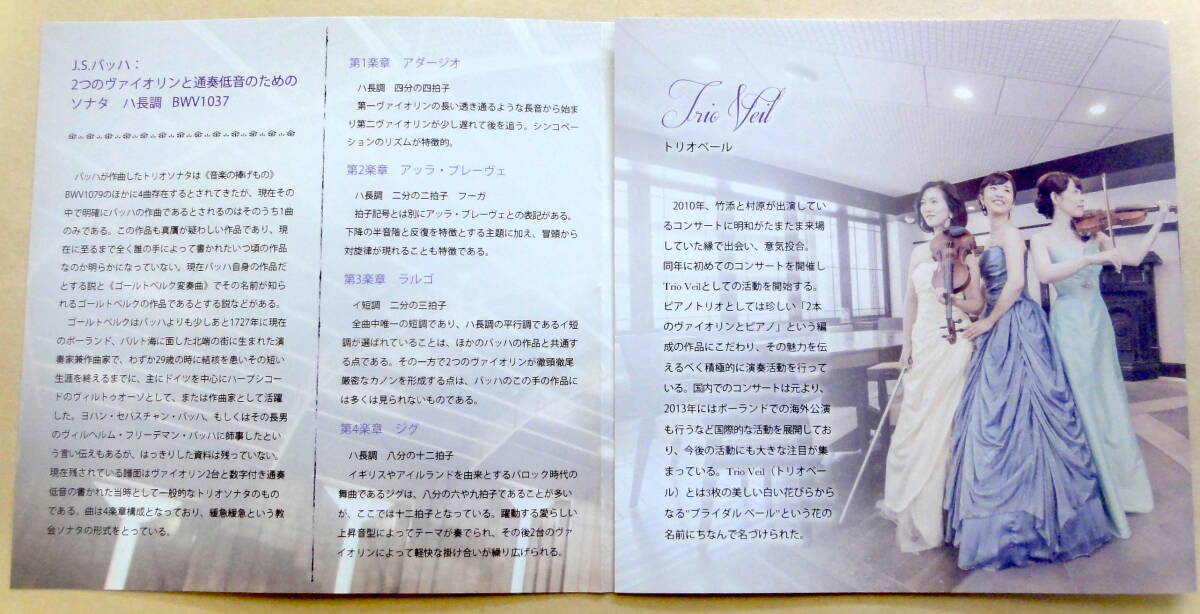 J.S.バッハ：
2つのヴァイオリンと通奏低音のための
ソナタ　ハ長調　BWV1037
バッハが作曲したトリオソナタは《音楽の捧げもの》
BWV1079のほかに4曲存在するとされてきたが、現在その
中で明確にバッハの作曲であるとされるのはそのうち1曲
のみである。この作品も真贋が疑わしい作品であり、現
在に至るまで全く誰の手によって書かれたいつ頃の作品
なのか明らかになっていない。現在バッハ自身の作品だ
とする説と《ゴールトベルク変奏曲》でその名前が知ら
れるゴールトベルクの作品であるとする説などがある。
ゴールトベルクはバッハよりも少しあと1727年に現在
のポーランド、バルト海に面した北端の街に生まれた演
奏家兼作曲家で、わずか29歳の時に結核を患いその短い
生涯を終えるまでに、主にドイツを中心にハープシコー
ドのヴィルトゥオーゾとして、または作曲家として活躍
した。ヨハン・セバスチャン・バッハ、もしくはその長男
のヴィルヘルム・フリーデマン・バッハに師事したとい
う言い伝えもあるが、はっきりした資料は残っていない。
現在残されている譜面はヴァイオリン2台と数字付き通奏
低音の書かれた当時として一般的なトリオソナタのもの
である。曲は4楽章構成となっており、緩急緩急という教
会ソナタの形式をとっている。
第1楽章　アダージオ
ハ長調　四分の四拍子
第一ヴァイオリンの長い透き通るような長音から始ま
り第二ヴァイオリンが少し遅れて後を追う。シンコペー
ションのリズムが特徴的。
第2楽章　アッラ・ブレーヴェ
ハ長調　二分の二拍子　フーガ
拍子記号とは別にアッラ・ブレーヴェとの表記がある。
下降の半音階と反復を特徴とする主題に加え、冒頭から
対旋律が現れることも特徴である。
第3楽章　ラルゴ
イ短調　二分の三拍子
全曲中唯一の短調であり、ハ長調の平行調であるイ短
調が選ばれていることは、ほかのバッハの作品と共通す
る点である。その一方で2つのヴァイオリンが徹頭徹尾
厳密なカノンを形成する点は、バッハのこの手の作品に
は多くは見られないものである。
第4楽章　ジグ
ハ長調　八分の十二拍子
イギリスやアイルランドを由来とするバロック時代の
舞曲であるジグは、八分の六や九拍子であることが多い
が、ここでは十二拍子となっている。躍動する愛らしい
上昇音型によってテーマが奏でられ、その後2台のヴァ
イオリンによって軽快な掛け合いが繰り広げられる。
Trio Veil
トリオベール
2010年、竹添と村原が出演してい
るコンサートに明和がたまたま来場
していた縁で出会い、意気投合。
同年に初めてのコンサートを開催し
Trio Veilとしての活動を開始する。
ピアノトリオとしては珍しい「2本
のヴァイオリンとピアノ」という編
成の作品にこだわり、その魅力を伝
えるべく積極的に演奏活動を行って
いる。国内でのコンサートは元より、
2013年にはポーランドでの海外公演
も行うなど国際的な活動を展開してお
り、今後の活動にも大きな注目が集
まっている。Trio Veil（トリオベー
ル）とは3枚の美しい白い花びらから
なる"ブライダル ベール"という花の
名前にちなんで名づけられた。